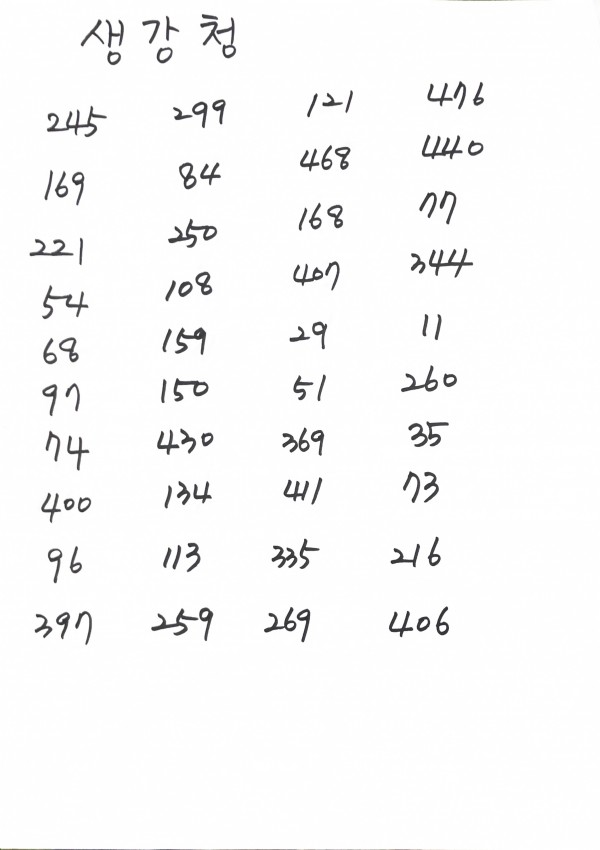 생강청
245 299 121 476
169 84 468 440
221 250 168 77
54 108 407 344
68 159 29 11
97 150 51 260
74 430 369 35
400 134 411 73
96 113 335 216
397 259 269 406